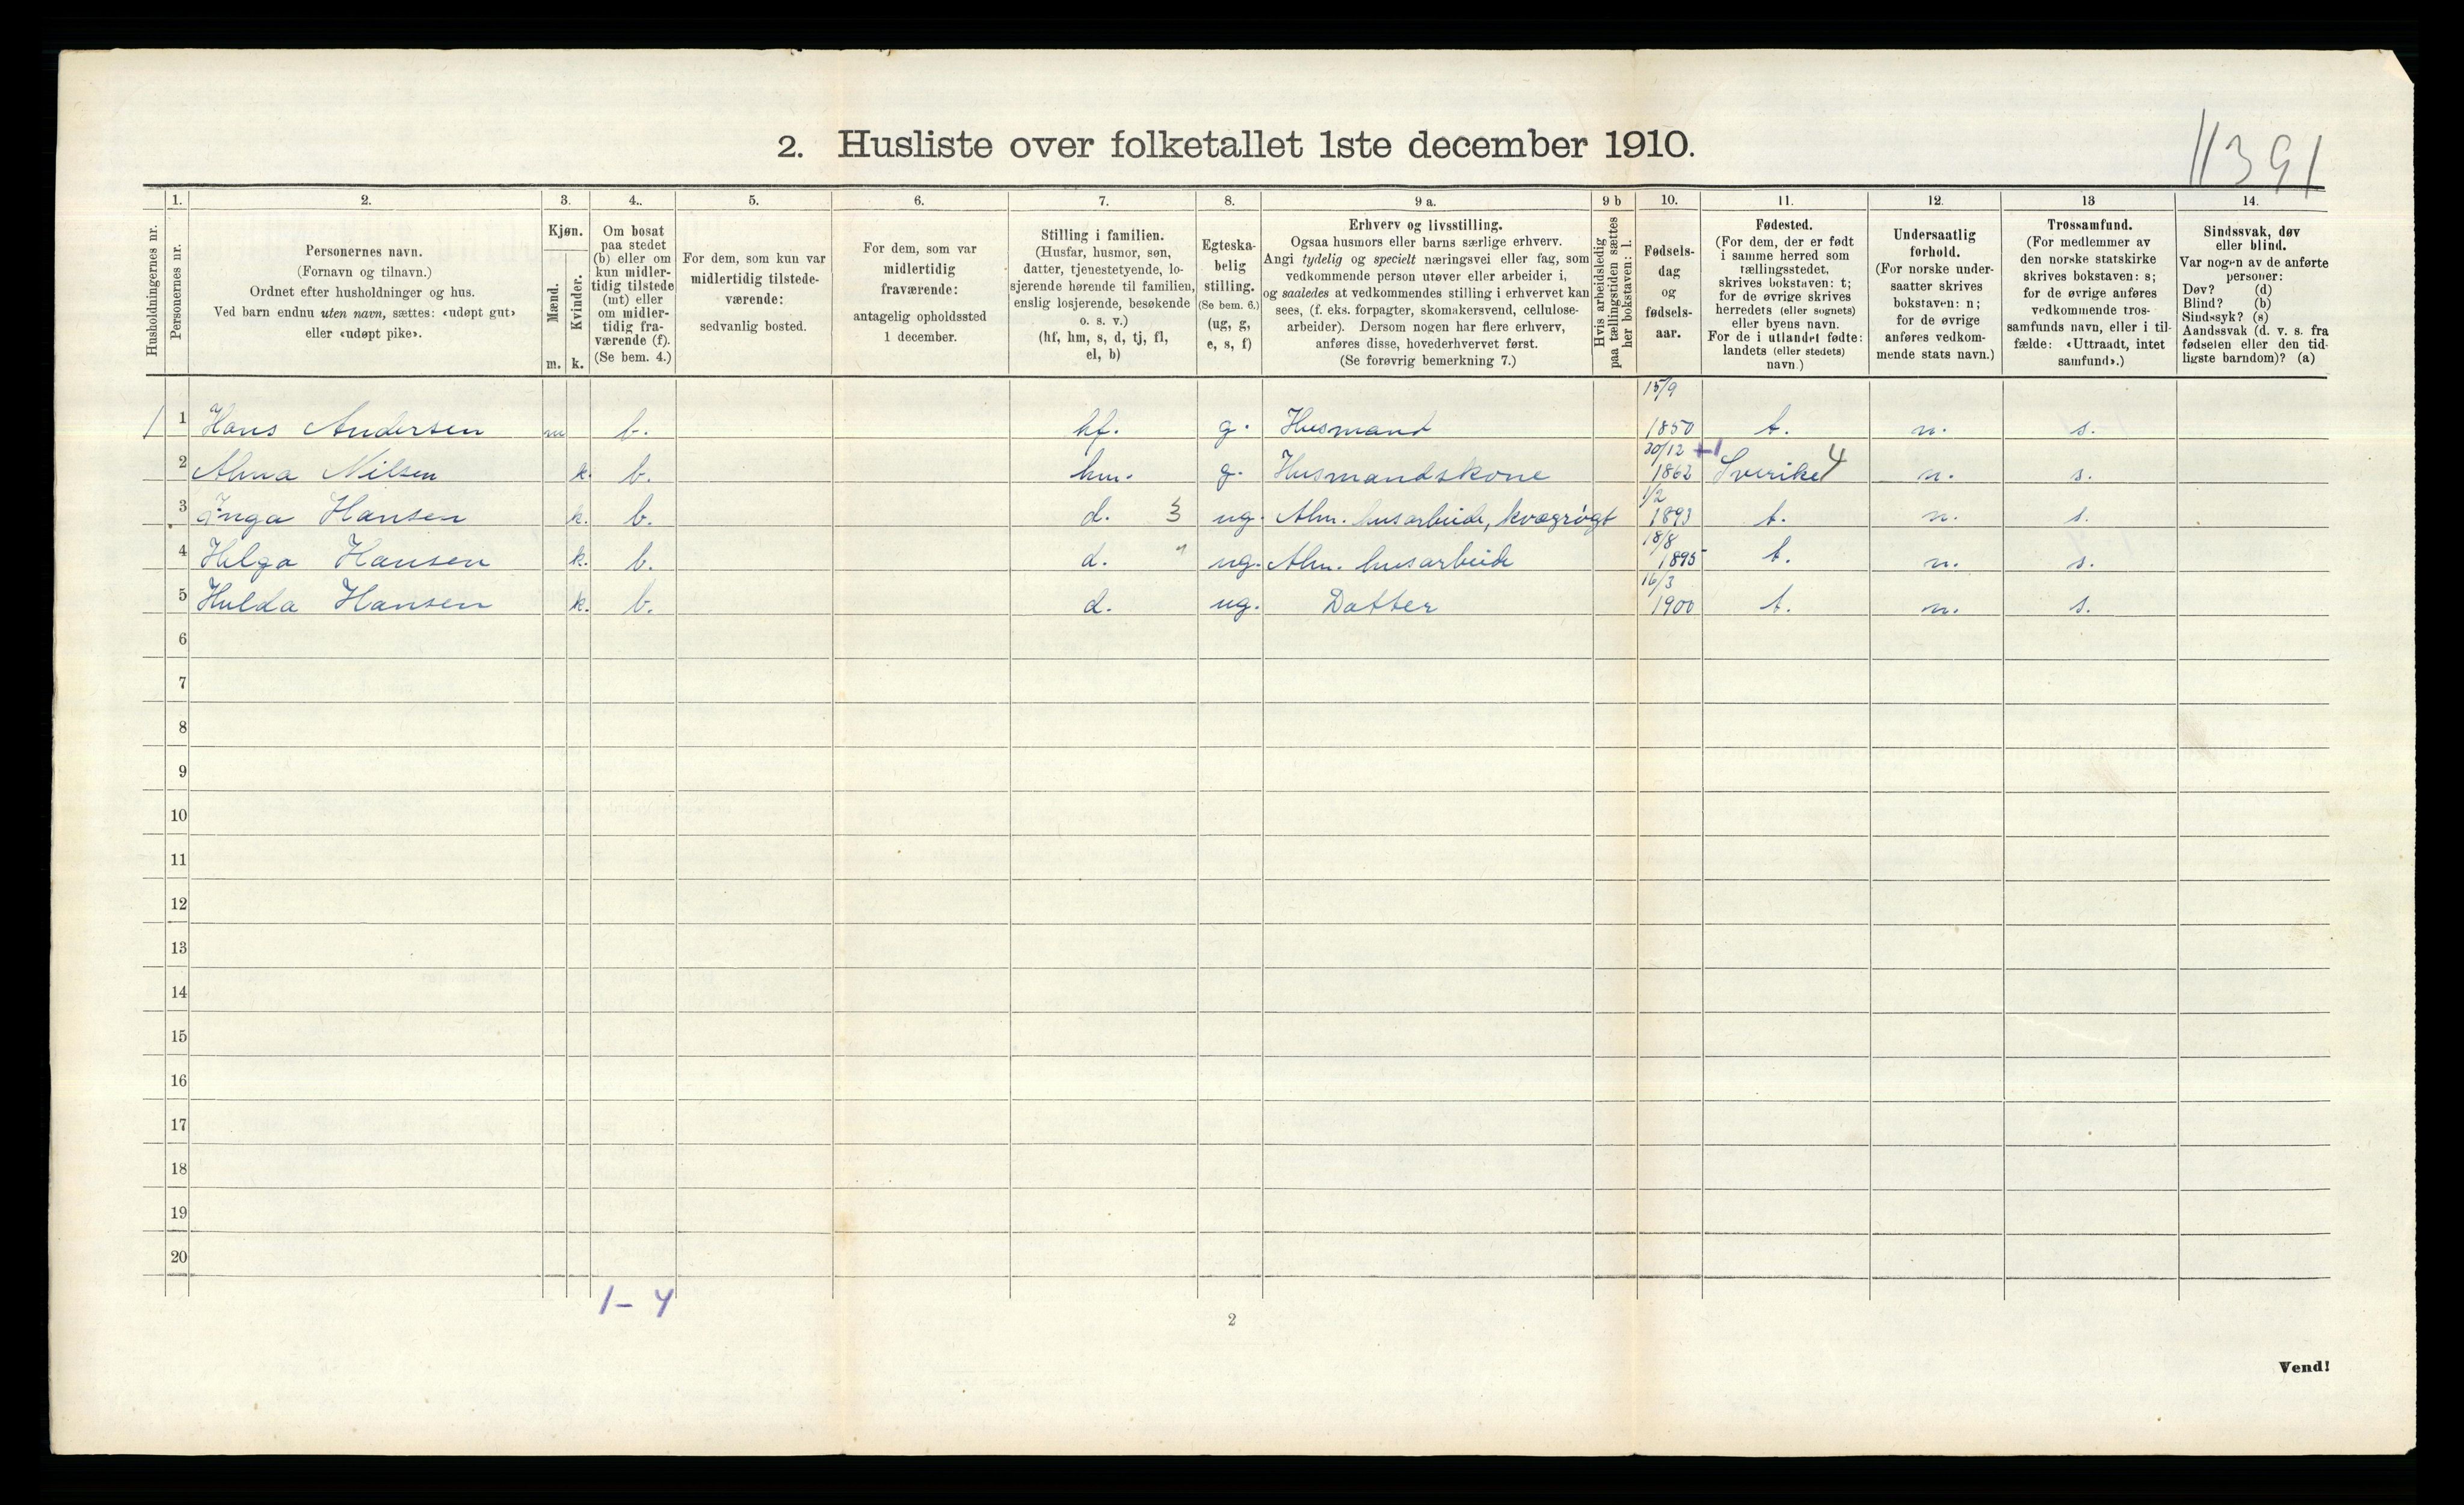 2. Husliste over folketallet 1ste december 1910.
11391
Husholdningernes nr.
1.
Personernes nr.
2.
Personernes navn.
(Fornavn og tilnavn.)
Ordnet efter husholdninger og hus.
Ved barn endnu uten navn, sættes: «udøpt gut»
eller «udøpt pike».
3.
Kjøn.
Mænd.
Kvinder.
m. k.
4..
Om bosat
paa stedet
(b) eller om
kun midler-
tidig tilstede
(mt) eller
om midler-
tidig fra-
værende (f).
(Se bem. 4.)
5.
For dem, som kun var
midlertidig tilstede-
værende:
sedvanlig bosted.
6.
For dem, som var
midlertidig
fraværende:
antagelig opholdssted
1 december.
7.
Stilling i familien.
(Husfar, husmor, søn,
datter, tjenestetyende, lo-
sjerende hørende til familien,
enslig losjerende, besøkende
o. s. v.)
(hf, hm, s, d, tj, fl,
el, b)
8.
Egteska-
belig
stilling.
(Se bem. 6.)
(ug, g,
e, s, f)
9 a.
Erhverv og livsstilling.
Ogsaa husmors eller barns særlige erhverv.
Angi tydelig og specielt næringsvei eller fag, som
vedkommende person utøver eller arbeider i,
og saaledes at vedkommendes stilling i erhvervet kan
sees, (f. eks. forpagter, skomakersvend, cellulose-
arbeider). Dersom nogen har flere erhverv,
anføres disse, hovederhvervet først.
(Se forøvrig bemerkning 7.)
9 b
Hvis arbeidsledig
paa tællingstiden sættes
her bokstaven: l.
10.
Fødsels-
dag
og
fødsels-
aar.
11.
Fødested.
(For dem, der er født
i samme herred som
tællingsstedet,
skrives bokstaven: t;
for de øvrige skrives
herredets (eller sognets)
eller byens navn.
For de i utlandet fødte:
landets (eller stedets)
navn.)
12.
Undersaatlig
forhold.
(For norske under-
saatter skrives
bokstaven: n;
for de øvrige
anføres vedkom-
mende stats navn.)
13
Trossamfund.
(For medlemmer av
den norske statskirke
skrives bokstaven: s;
for de øvrige anføres
vedkommende tros-
samfunds navn, eller i til-
fælde: «Uttraadt, intet
samfund».)
14.
Sindssvak, døv
eller blind.
Var nogen av de anførte
personer:
Døv? (d)
Blind? (b)
Sindssyk? (s)
Aandssvak (d. v. s. fra
fødselen eller den tid-
ligste barndom)? (a)
1 1 Hans Andersen m b. hf. g. Husmand 15/9 1850 t. n. s.
2 Alma Nilsen k. b. hm. g. Husmandskone 30/12 +1 1862 Sverike 4 n. s.
3 Inga Hansen k. b. d. 3 ug. Alm. husarbeide, kvægrøgt 1/2 1893 t. n. s.
4 Helga Hansen k. b. d. " ug. Alm. husarbeide 18/8 1895 t. n. s.
5 Hulda Hansen k. b. d. ug. Datter 16/3 1900 t. n. s.
6
7
8
9
10
11
12
13
14
15
16
17
18
19
20
1 - 4
2
Vend!